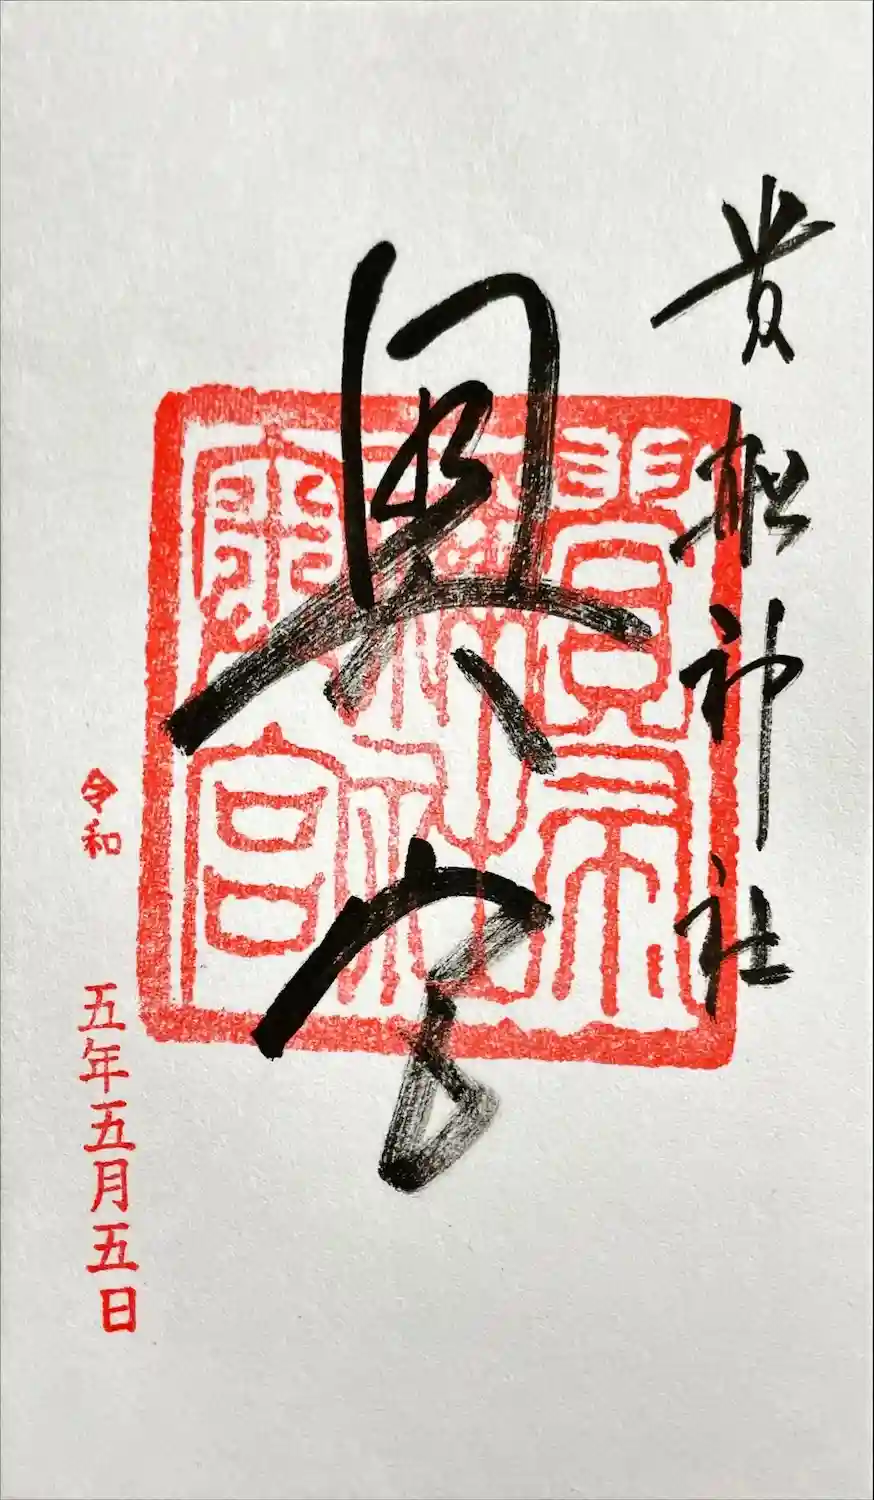 貴船神社
奥宮
貴布
禰社
奥宮
令和 五年五月五日